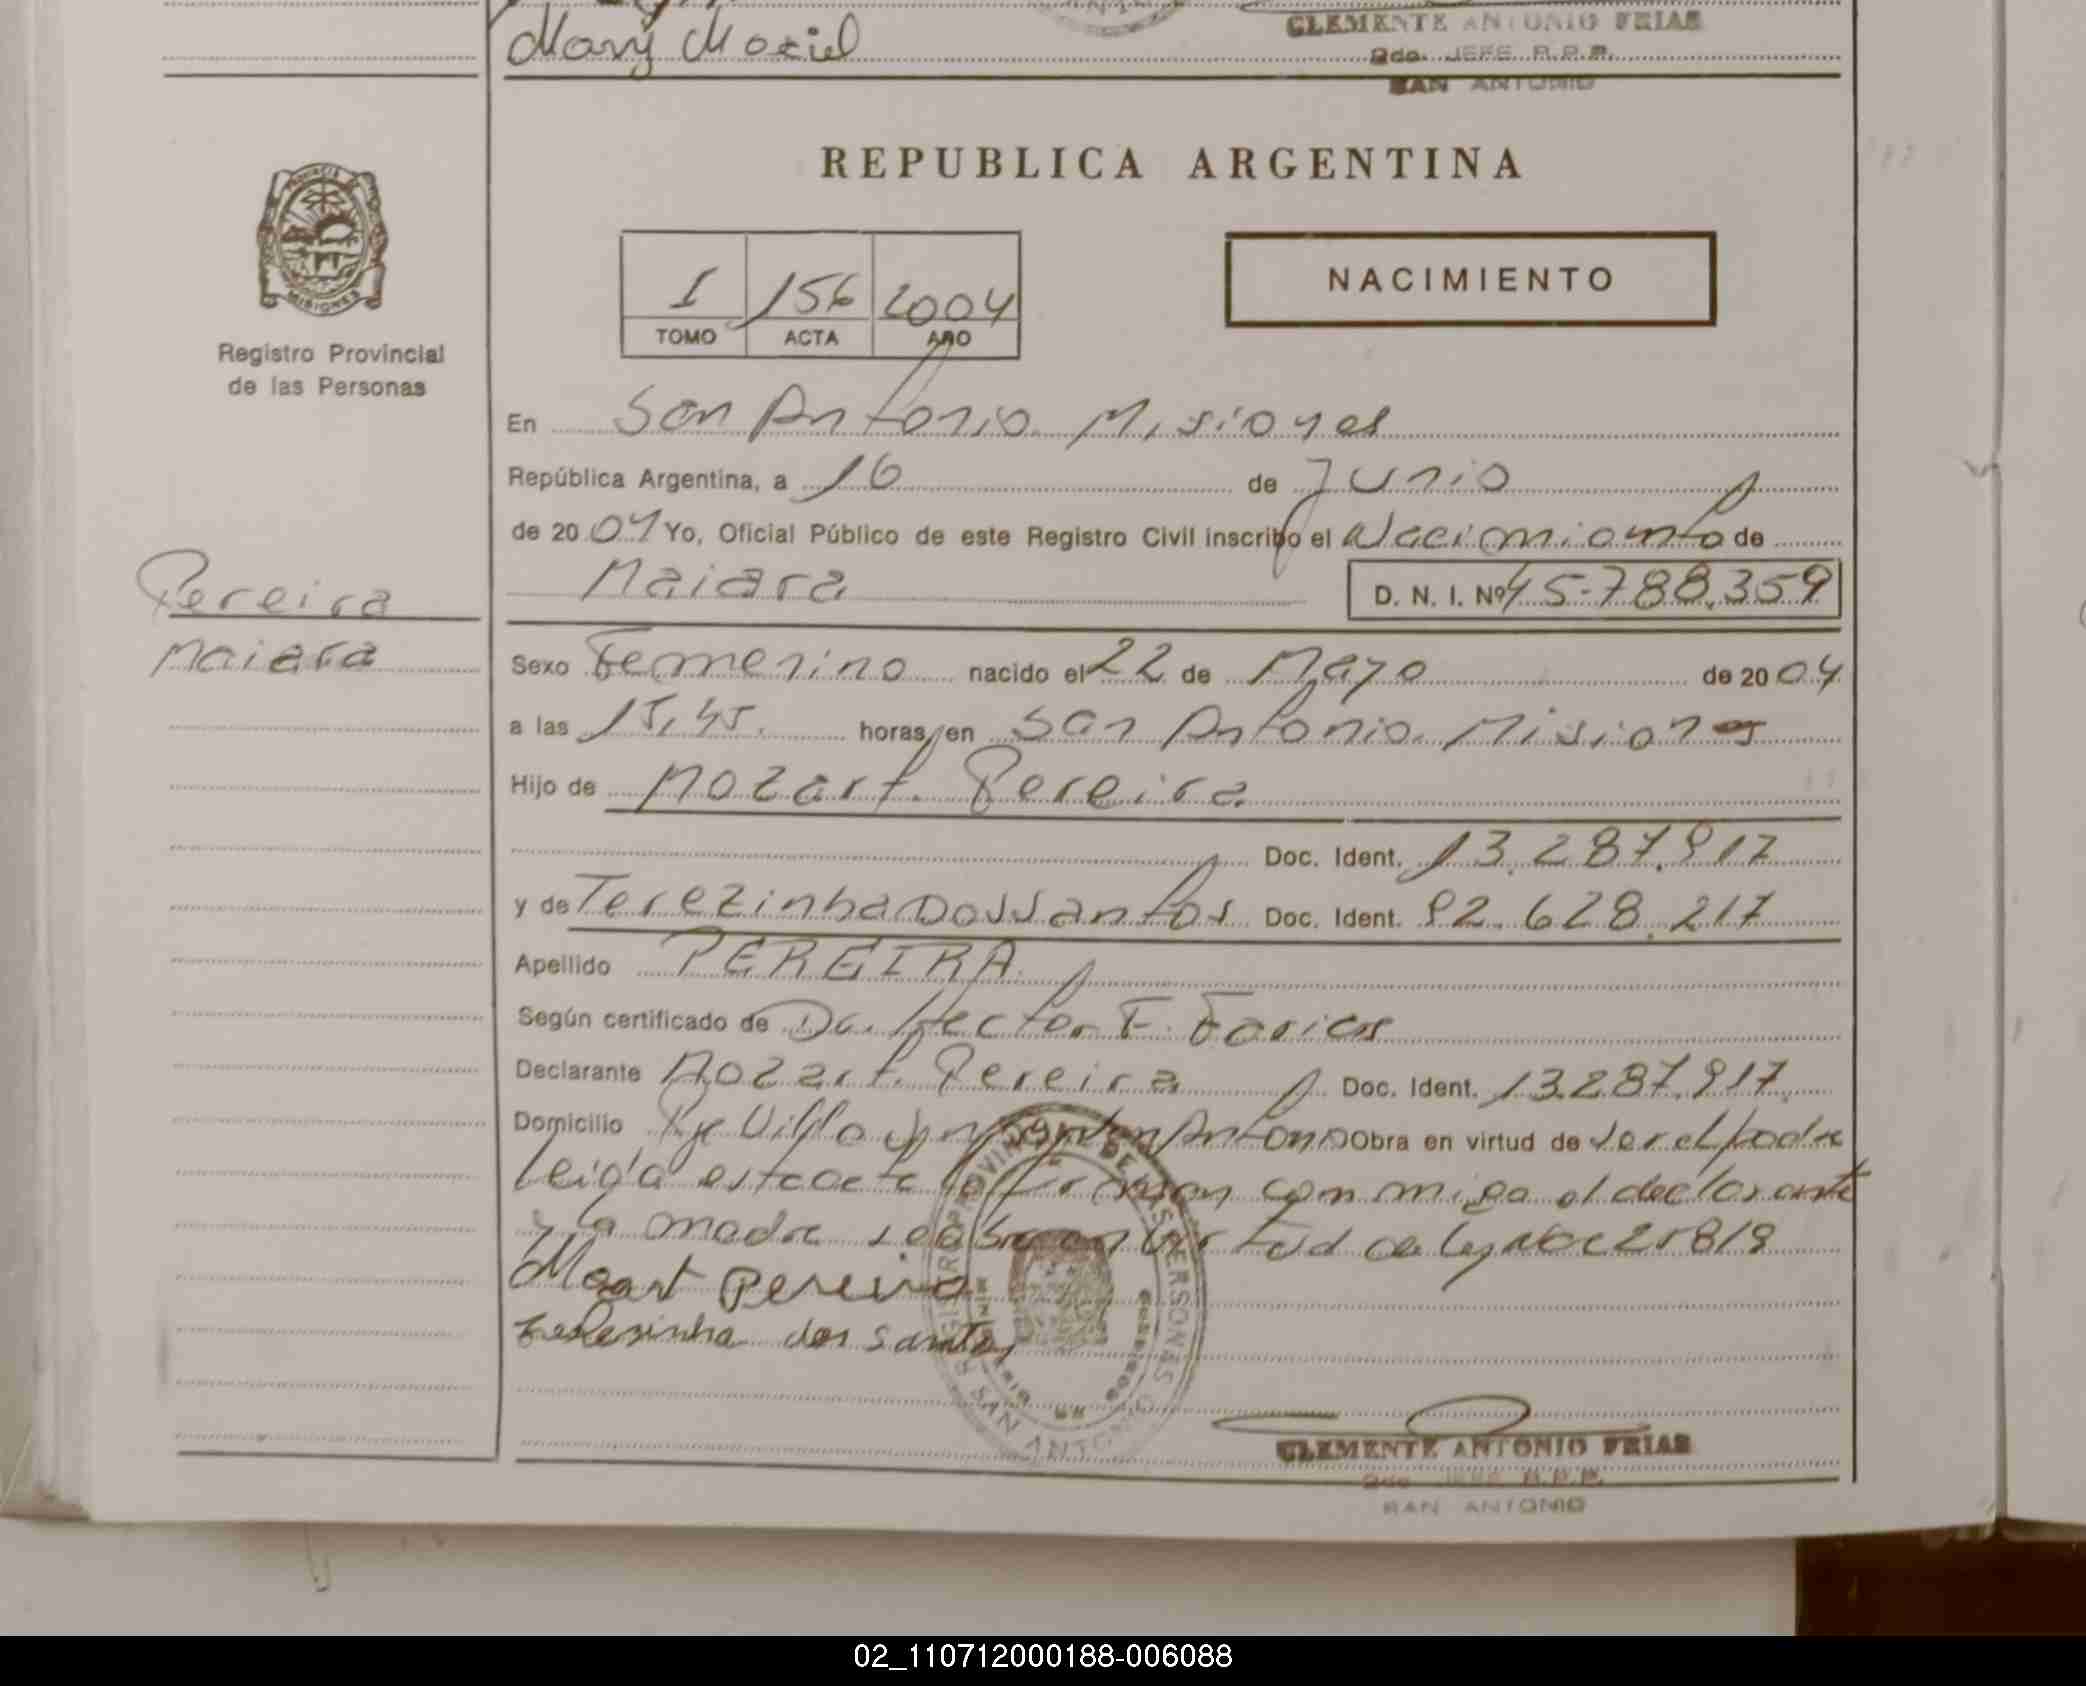 Mary Maciel
CLEMENTE ANTONIO FRIAS
2do. JEFE R.P.P.
SAN ANTONIO
REPUBLICA ARGENTINA
PROVINCIA DE
MISIONES
Registro Provincial
de las Personas
I 156 2004
TOMO ACTA AÑO
NACIMIENTO
En San Antonio. Misiones
República Argentina, a 16 de Junio
de 2004 Yo, Oficial Público de este Registro Civil inscribo el Nacimiento de
Maiara D. N. I. Nº 45-788.359
Pereira
Maiara
Sexo Femenino nacido el 22 de Mayo de 2004
a las 15,45. horas, en San Antonio. Misiones
Hijo de Mozart. Pereira
Doc. Ident. 13.287.917
y de Terezinha Dos Santos Doc. Ident. 92.628.217
Apellido PEREIRA
Según certificado de Dr. Hector F. Farias
Declarante Mozart. Pereira Doc. Ident. 13.287.917
Domicilio Villa San Antonio Obra en virtud de ser el padre
Leida esta acta la firman conmigo el declarante
y la madre se obra en virtud de Ley Nac 21819
Mozart Pereira
Teresinha dos Santos
REGISTRO PROVINCIAL DE LAS PERSONAS
SAN ANTONIO
CLEMENTE ANTONIO FRIAS
2do JEFE R.P.P.
SAN ANTONIO
02_110712000188-006088